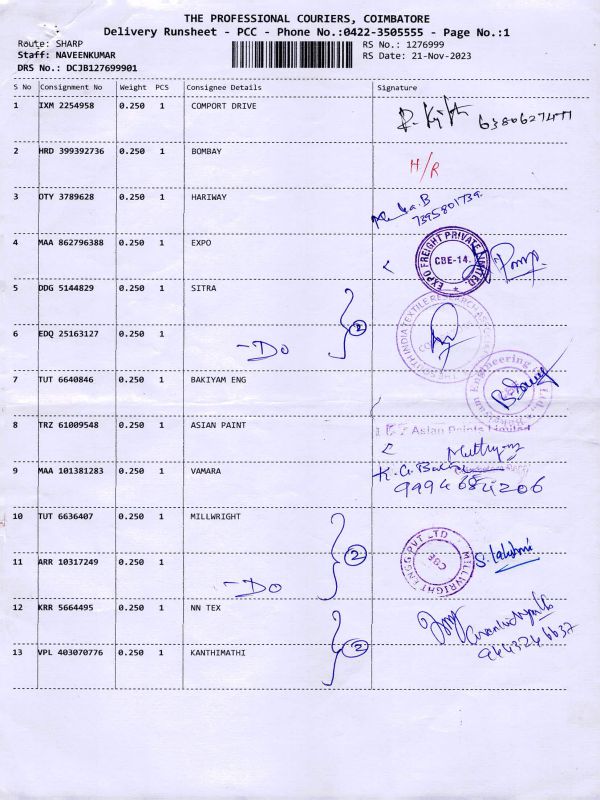 THE PROFESSIONAL COURIERS, COIMBATORE
Delivery Runsheet - PCC - Phone No.:0422-3505555 - Page No.:1
Route: SHARP
RS No.: 1276999
Staff: NAVEENKUMAR
RS Date: 21-Nov-2023
DRS No.: DCJB127699901
S No Consignment No Weight PCS Consignee Details Signature
1 IXM 2254958 0.250 1 COMPORT DRIVE
6380627477
2 HRD 399392736 0.250 1 BOMBAY
H/R
3 OTY 3789628 0.250 1 HARIWAY
7395801739.
4 MAA 862796388 0.250 1 EXPO
EXPO FREIGHT PRIVATE LIMITED
CBE-14.
5 DDG 5144829 0.250 1 SITRA
2
6 EDQ 25163127 0.250 1
- Do
7 TUT 6640846 0.250 1 BAKIYAM ENG
8 TRZ 61009548 0.250 1 ASIAN PAINT
Asian Paints Limited
9 MAA 101381283 0.250 1 VAMARA
9994684206
10 TUT 6636407 0.250 1 MILLWRIGHT
MILLWRIGHT ENGG PVT LTD
CBE
S. Lakshmi
2
11 ARR 10317249 0.250 1
- Do
12 KRR 5664495 0.250 1 NN TEX
2
9443246637
13 VPL 403070776 0.250 1 KANTHIMATHI